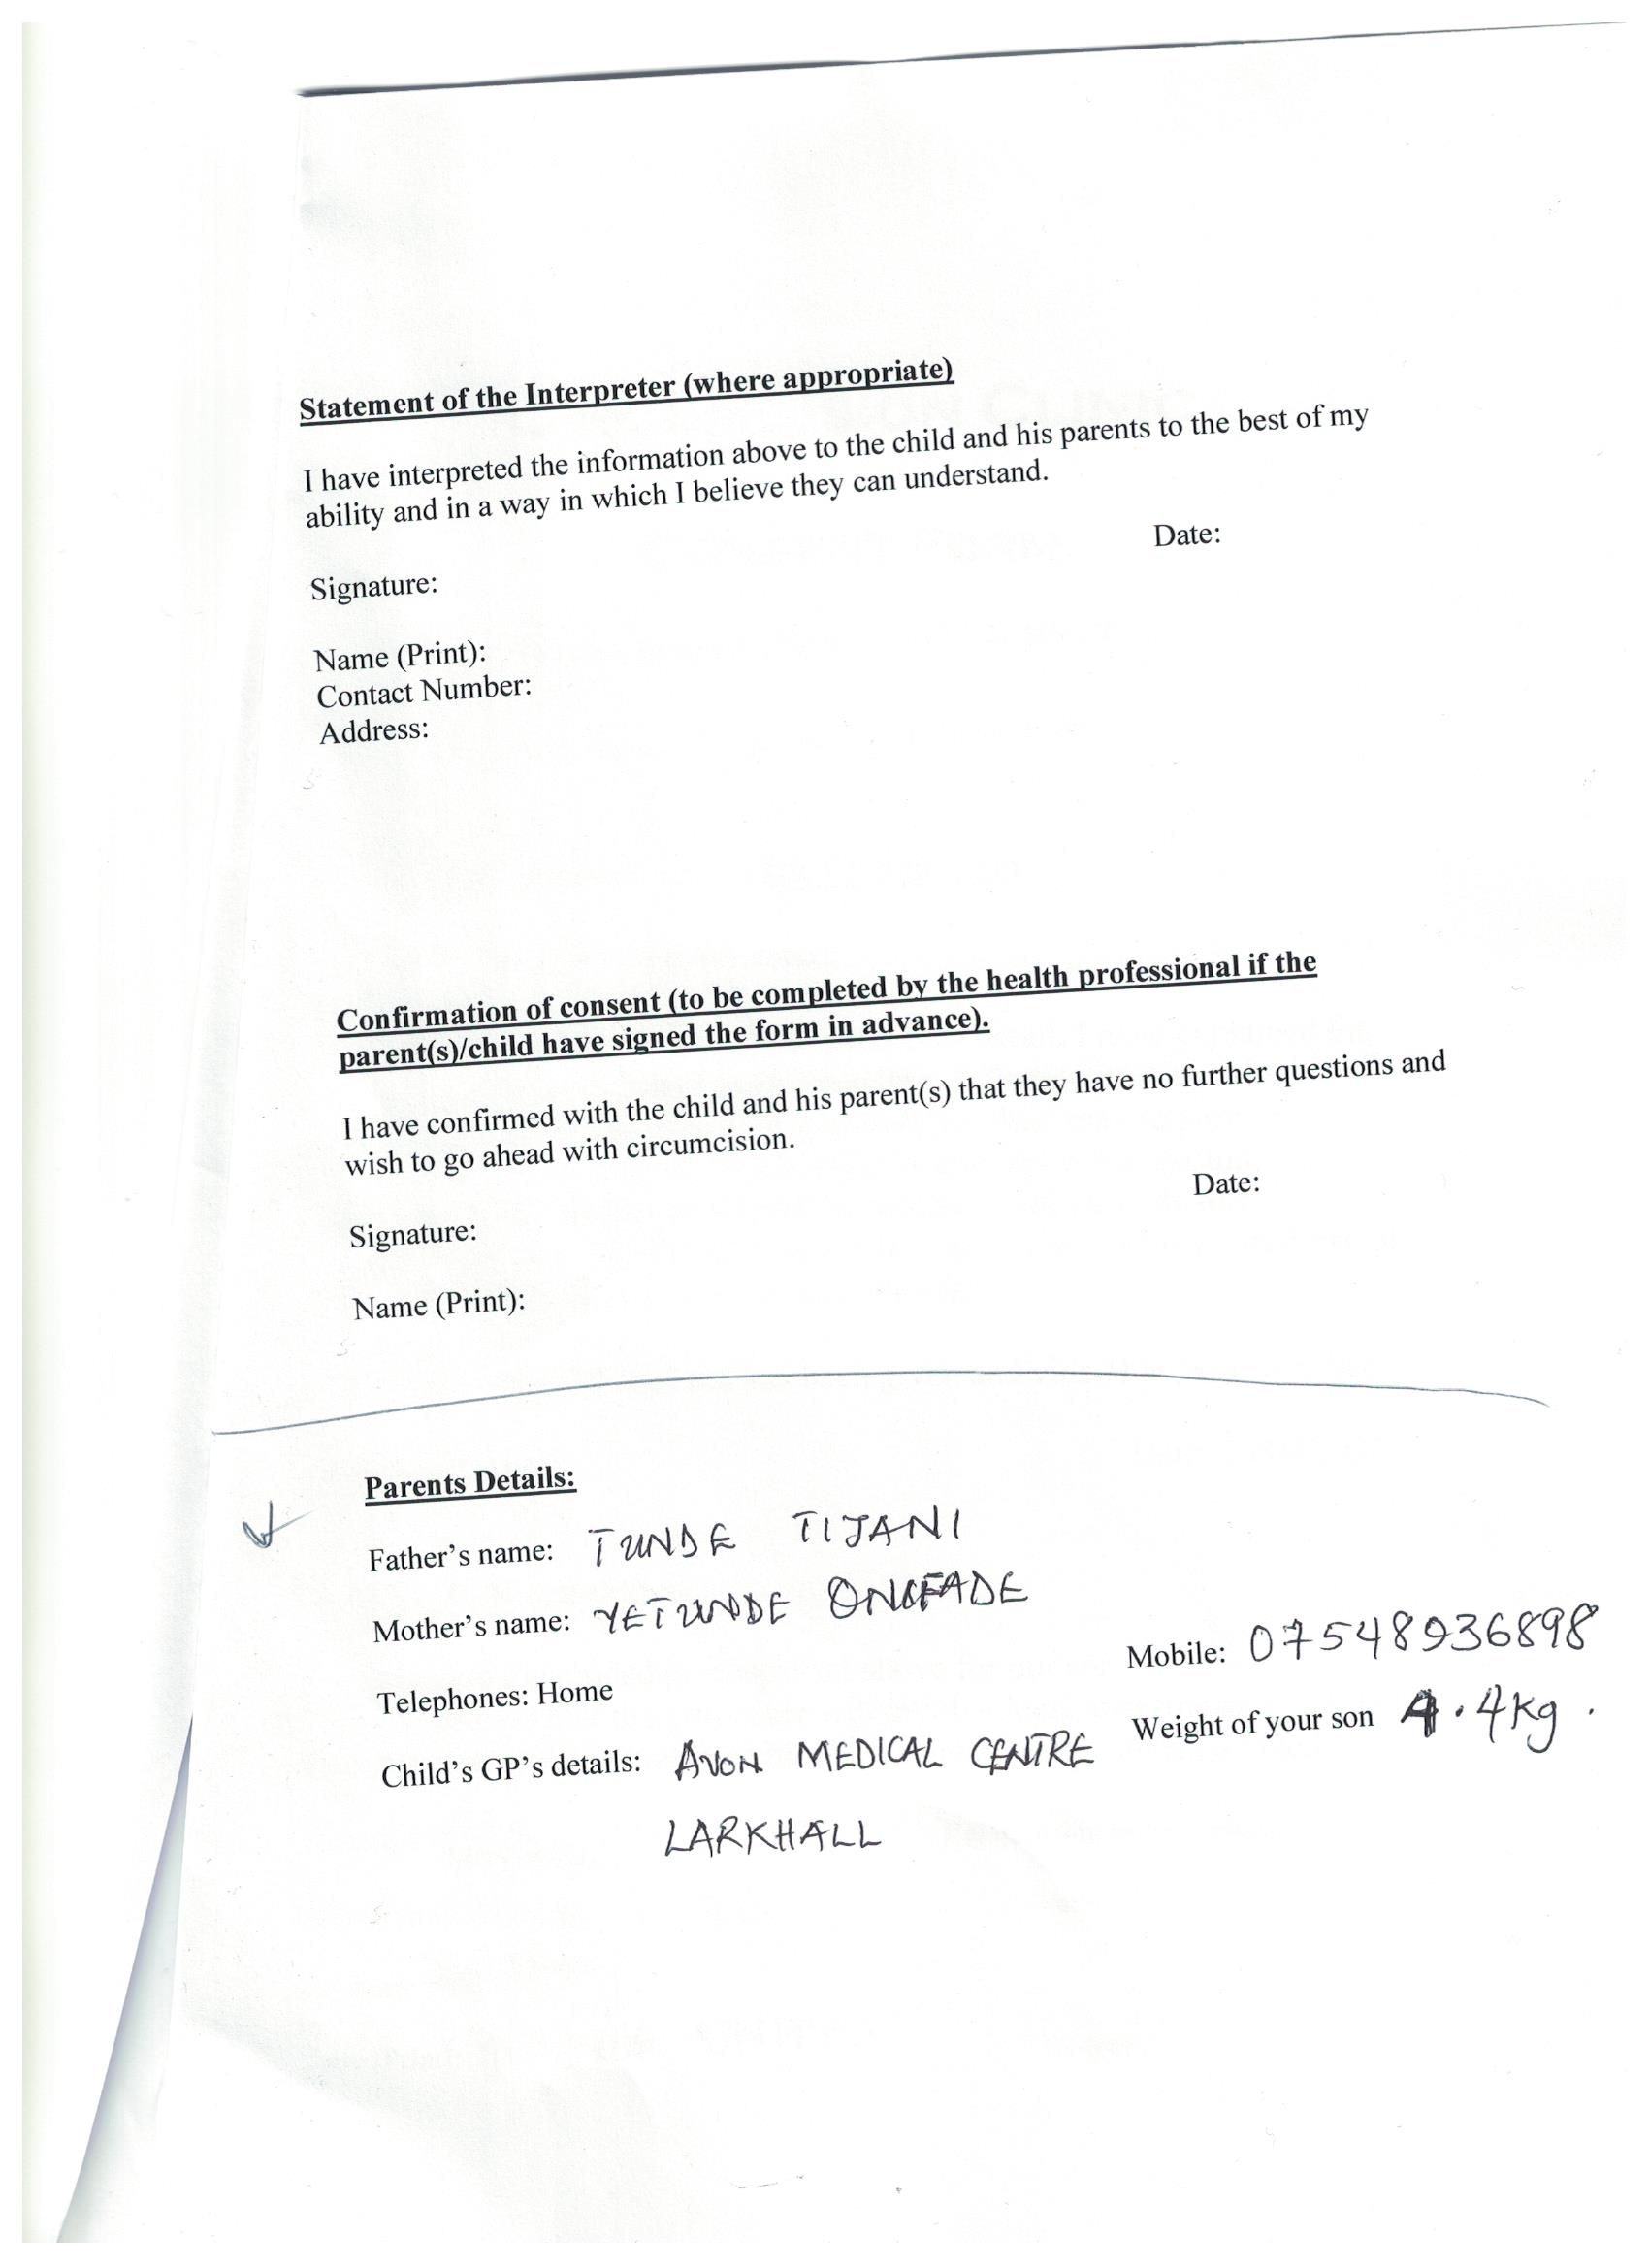 Statement of the Interpreter (where appropriate)
I have interpreted the information above to the child and his parents to the best of my
ability and in a way in which I believe they can understand.
Date:
Signature:
Name (Print):
Contact Number:
Address:
Confirmation of consent (to be completed by the health professional if the
parent(s)/child have signed the form in advance).
I have confirmed with the child and his parent(s) that they have no further questions and
wish to go ahead with circumcision.
Date:
Signature:
Name (Print):
Parents Details:
Father's name: TUNDE TIJANI
Mother's name: YETUNDE
Telephones: Home Mobile: 07548936898
Child's GP's details: AVON MEDICAL CENTRE Weight of your son 4.4kg.
LARKHALL